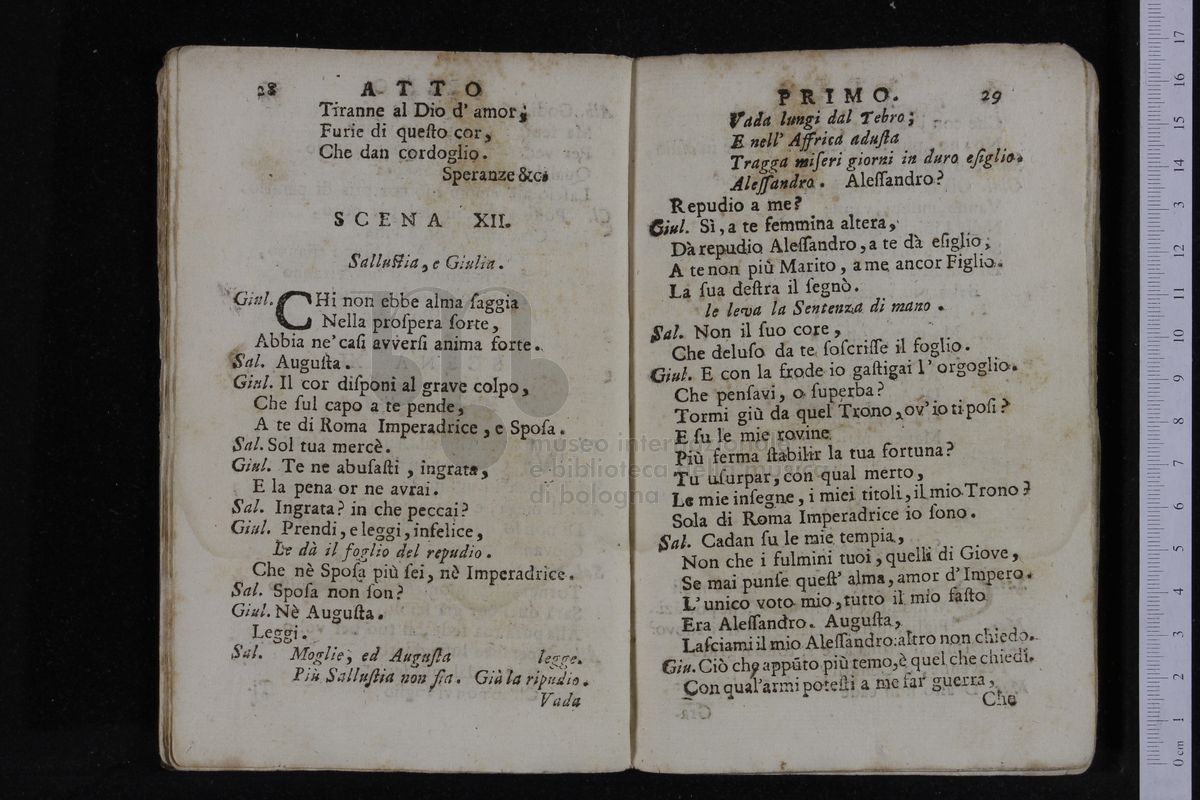 28 ATTO
Tiranne al Dio d' amor;
Furie di queſto cor,
Che dan cordoglio.
Speranze &c.
SCENA XII.
Salluſtia, e Giulia.
Giul. CHi non ebbe alma ſaggia
Nella proſpera ſorte,
Abbia ne' caſi avverſi anima forte.
Sal. Auguſta.
Giul. Il cor diſponi al grave colpo,
Che ſul capo a te pende,
A te di Roma Imperadrice, e Spoſa.
Sal. Sol tua mercè.
Giul. Te ne abuſaſti, ingrata,
E la pena or ne avrai.
Sal. Ingrata? in che peccai?
Giul. Prendi, e leggi, infelice,
Le dà il foglio del repudio.
Che nè Spoſa più ſei, nè Imperadrice.
Sal. Spoſa non ſon?
Giul. Nè Auguſta.
Leggi.
Sal. Moglie, ed Auguſta legge.
Più Salluſtia non ſia. Già la ripudio.
Vada
PRIMO. 29
Vada lungi dal Tebro;
E nell' Affrica aduſta
Tragga miſeri giorni in duro eſiglio.
Aleſſandro. Aleſſandro?
Repudio a me?
Giul. Sì, a te femmina altera,
Dà repudio Aleſſandro, a te dà eſiglio;
A te non più Marito, a me ancor Figlio.
La ſua deſtra il ſegnò.
le leva la Sentenza di mano.
Sal. Non il ſuo core,
Che deluſo da te ſoſcriſſe il foglio.
Giul. E con la frode io gaſtigai l' orgoglio.
Che penſavi, o ſuperba?
Tormi giù da quel Trono, ov' io ti poſi?
E ſu le mie rovine
Più ferma ſtabilir la tua fortuna?
Tu uſurpar, con qual merto,
Le mie inſegne, i miei titoli, il mio Trono?
Sola di Roma Imperadrice io ſono.
Sal. Cadan ſu le mie tempia,
Non che i fulmini tuoi, quelli di Giove,
Se mai punſe queſt' alma, amor d' Impero.
L' unico voto mio, tutto il mio faſto
Era Aleſſandro. Auguſta,
Laſciami il mio Aleſſandro: altro non chiedo.
Giu. Ciò che appūto più temo, è quel che chiedi.
Con qual' armi poteſti a me far guerra,
Che
museo internazionale
e biblioteca della musica
di bologna
0 cm 1 2 3 4 5 6 7 8 9 10 11 12 13 14 15 16 17